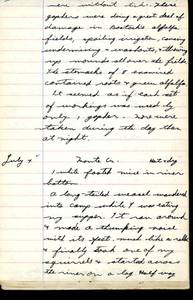 were without tish. These
gophers were doing a great deal of
damage in particular alfalfa
fields, spoiling irrigation, causing
undermining & washouts, & throwing
up mounds all over the fields.
The stomachs of 8 examined
contained roots & green alfalfa.
It seemed as if each set
of workings was used by
only 1 gopher. More were
taken during the day than
at night.
July 4 Hot day
1 white footed mice in river
bottom
A long-tailed weasel wandered
into camp while I was eating
my supper. It ran around
& made a thumping noise
with its feet much like a rabbit
& finally took one of my
squirrels & started across
the river on a log. Half way